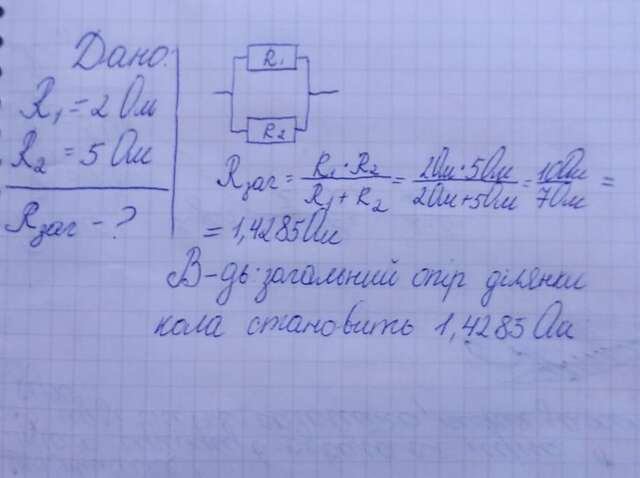 Дано:
R₁ = 2 Ом
R₂ = 5 Ом
Rзаг - ?
R₁
R₂
Rзаг = R₁·R₂ / R₁+R₂ = 2Ом·5Ом / 2Ом+5Ом = 10Ом / 7Ом =
= 1,4285Ом
В-дь: загальний опір ділянки
кола становить 1,4285 Ом